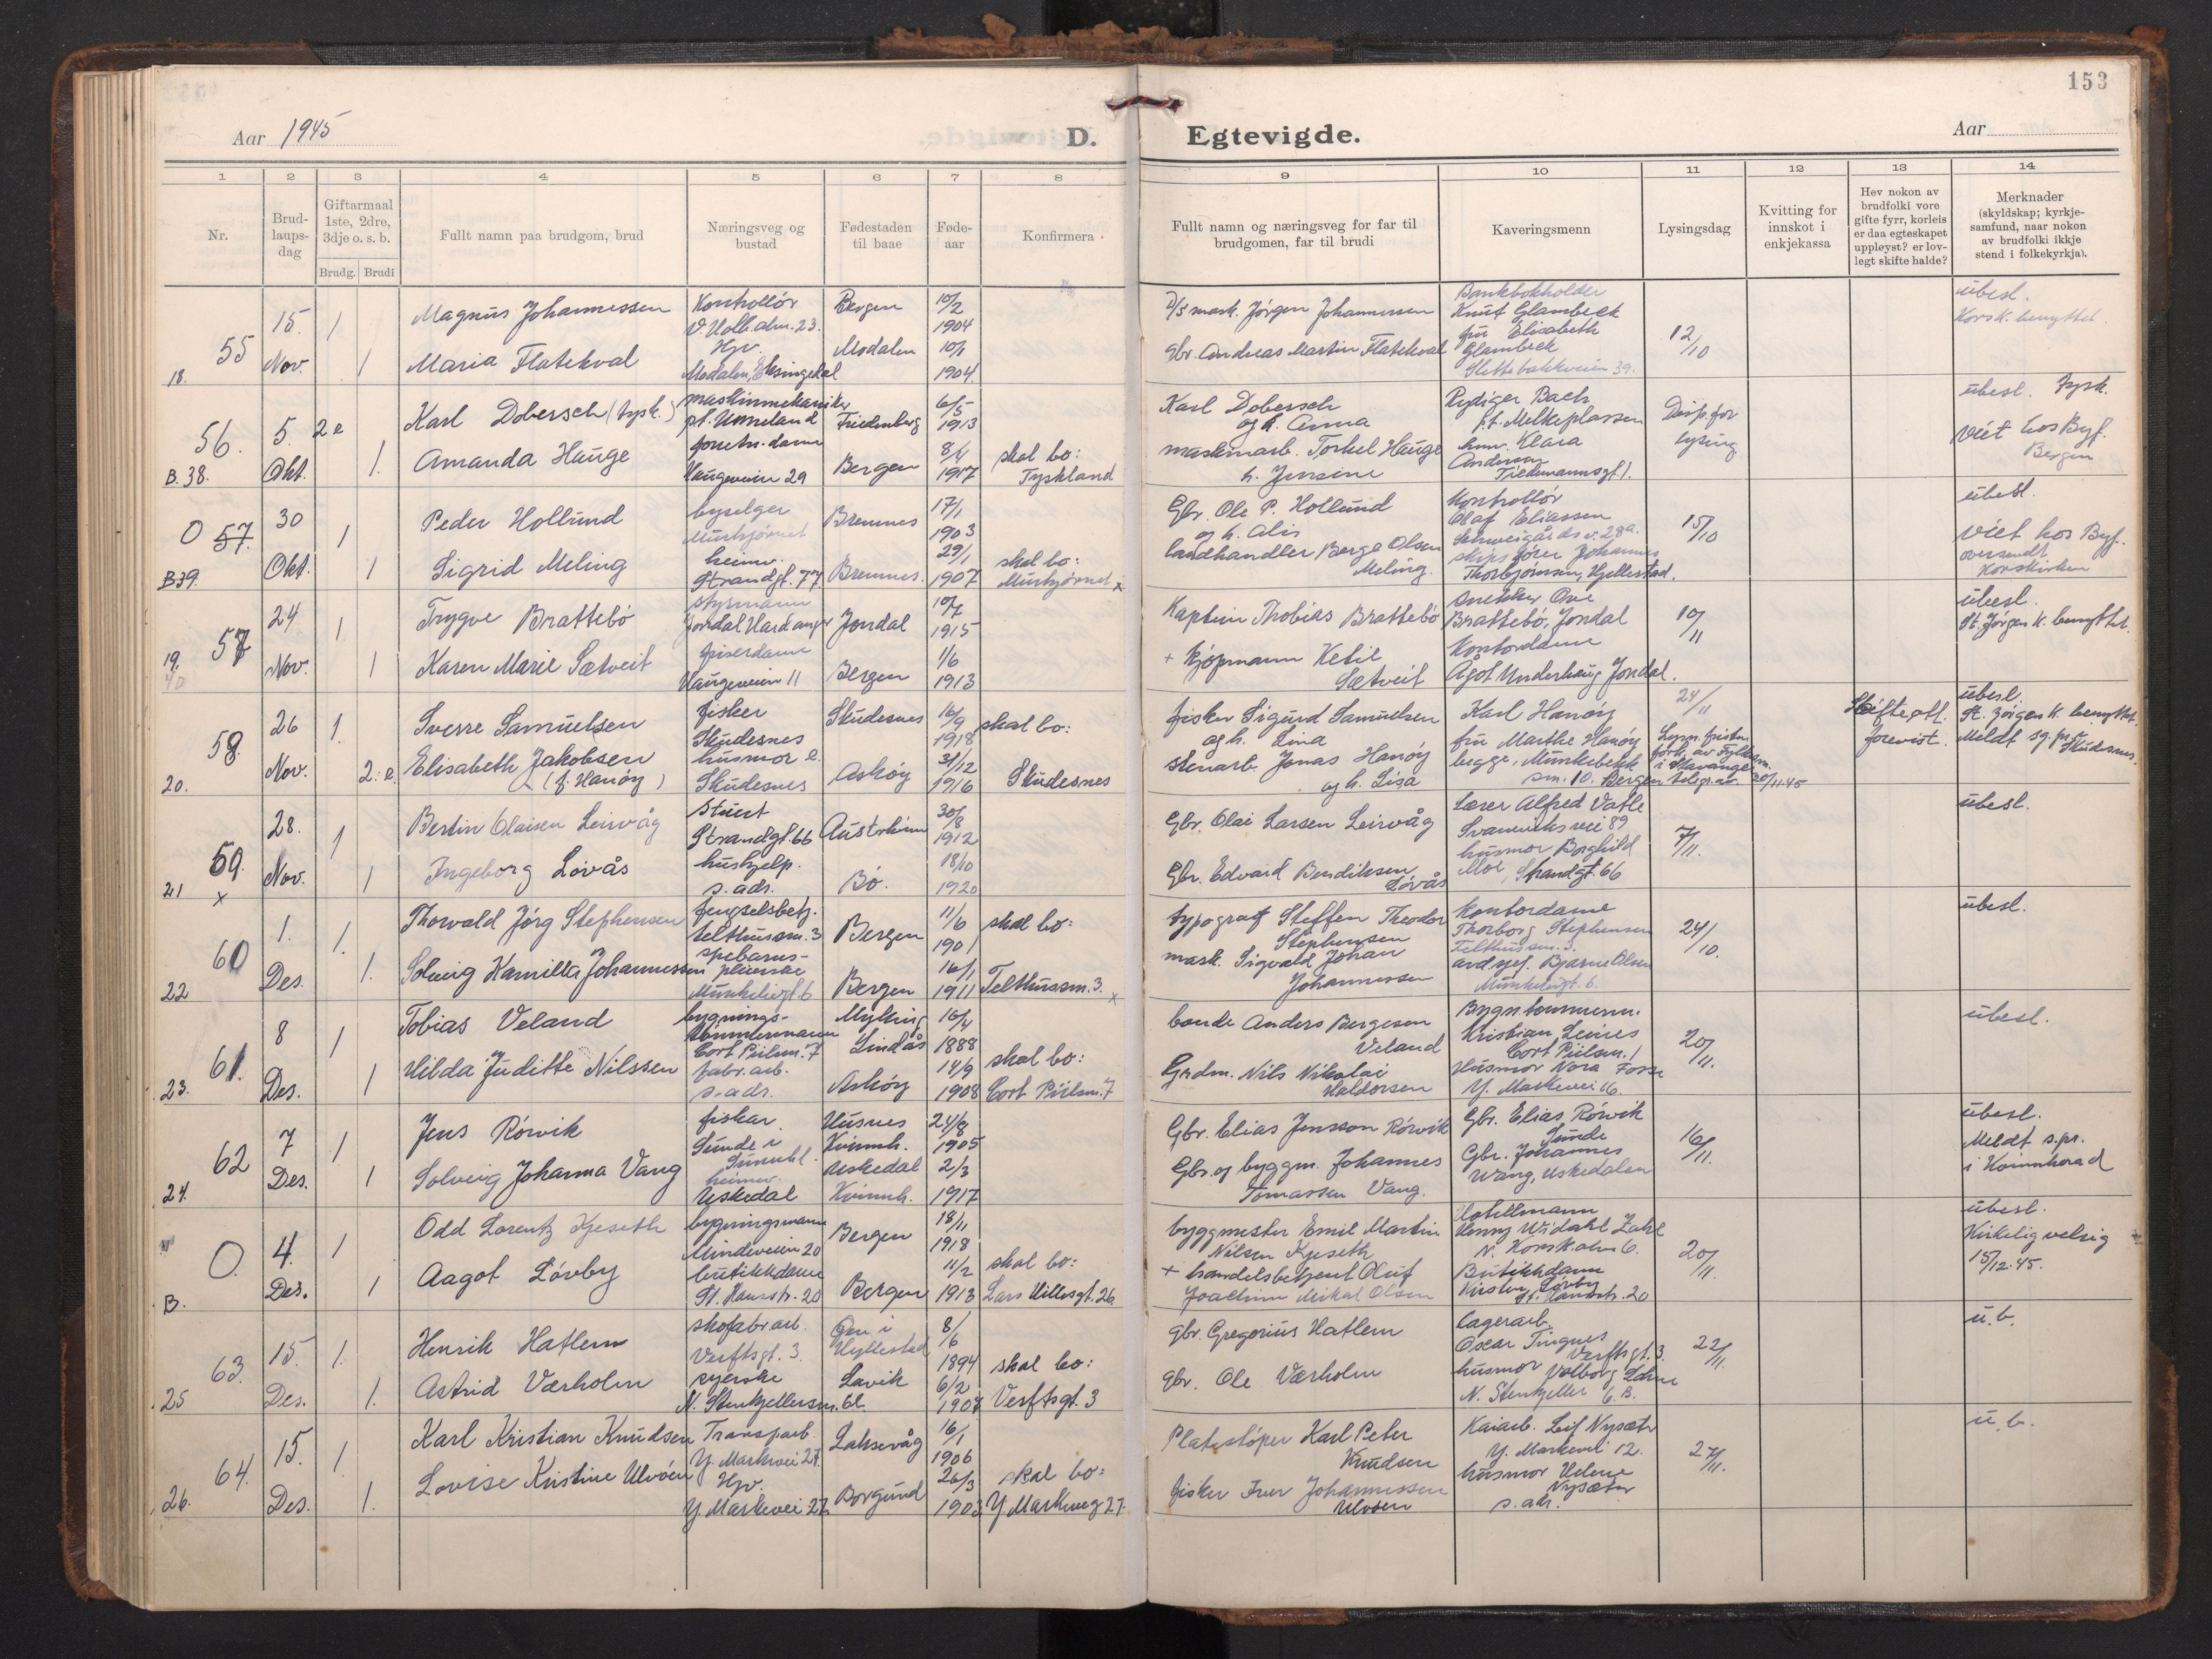 153
Aar 1945
D. Egtevigde.
Aar
1 2 3 4 5 6 7 8 9 10 11 12 13 14
Nr.
Brud-
laups-
dag
Giftarmaal
1ste, 2dre,
3dje o. s. b.
Brudg. Brudi
Fullt namn paa brudgom, brud
Næringsveg og
bustad
Fødestaden
til baae
Føde-
aar
Konfirmera
Fullt namn og næringsveg for far til
brudgomen, far til brudi
Kaveringsmenn
Lysingsdag
Kvitting for
innskot i
enkjekassa
Hev nokon av
brudfolki vore
gifte fyrr, korleis
er daa egteskapet
uppløyst? er lov-
legt skifte halde?
Merknader
(skyldskap; kyrkje-
samfund, naar nokon
av brudfolki ikkje
stend i folkekyrkja).
18. 55
15. Nov.
1
1
Magnus Johannessen
Maria Flatekval
Kontrollör
V. Holb. alm. 23.
Hjv.
Modalen, Eksingedal
Bergen
Modalen
10/2
1904
10/1
1904
D/S mask. Jørgen Johannessen
gbr. Andreas Martin Flatekval
Bankbokholder
Knut Glambeck
fru Elisabeth
Glambeck
Slettebakkveien 39.
12/10
übesl.
Korsk. benyttet.
B. 38. 56.
5. Okt.
2e
1.
Karl Dobersch (tysk.)
Amanda Hauge
maskinmekaniker
pt. Unneland
Haugeveien 29
Friedenberg
Bergen
6/5
1913
8/4
1917
skal bo:
Tyskland
Karl Dobersch
og h. Anna
maskinarb. Torkel Hauge
h. Jensine
Rydiger Bach
pt. Melkeplassen
Klara
Andersen
Tidemannsgt. 1.
Disp. for
lysing
übesl. Tysk.
Viet hos Byf.
Bergen
B 39. O 57.
30 Okt.
1
1
Peder Hollund
Sigrid Meling
byselger
heimv.
Strandgt. 77
Bremnes
Bremnes.
17/1
1903
29/1
1907
skal bo:
Gbr. Ole P. Hollund
og h. Alis
landhandler Berge Olsen
Meling.
Kontrollör
Olaf Eliassen
Schweigårds v. 28a.
skipsfører Johannes
Thorbjørnsen, Hjellestad.
15/10
übesl.
Viet hos Byf.
oversendt
Korskirken
19. 40 57
24 Nov.
1
1
Trygve Brattebö
Karen Marie Sætveit
styrmann
Jondal Hardanger
friserdame
Haugeveien 11
Jondal
Bergen
10/7
1915
1/6
1913
Kaptein Thobias Brattebö
+ kjøpmann Ketil
Sætveit
snekker Ove
Brattebö, Jondal
Kontordame
Ågot Underhaug Jondal.
10/11
übesl.
St. Jörgen k. benyttet.
20. 58.
26 Nov.
1.
2. e
Sverre Samuelsen
Elisabeth Jakobsen
(f. Hanöy)
fisker
Skudesnes
husmor e.
Skudesnes
Skudesnes
Asköy
16/9
1918
31/12
1916
skal bo:
Skudesnes
fisker Sigurd Samuelsen
og h. Lina
stenarb. Jonas Hanöy
og h. Lisa
Karl Hanöy
fru Marthe Hanöy
begge, Munkebekk
sm. 10. Bergen
24/11
Skifteatt.
forevist.
übesl.
St. Jörgen k. benyttet.
Meldt sg. pr. Skudesnes.
21 59. x
28. Nov.
1
1
Bertin Olaisen Leirvåg
Ingeborg Lövås
stuert
Strandgt. 66
hushjelp.
s. adr.
Austrheim
Bö.
30/8
1912
18/10
1920
Gbr. Olai Larsen Leirvåg
Gbr. Edvard Bendiksen
Lövås
Lærer Alfred Vatle
Svaneviks vei 89
husmor Borghild
Moe, Strandgt 66
7/11.
übesl.
22 60
1. Des.
1.
1.
Thorvald Jörg Stephensen
Solveig Kamilla Johannessen
fengselsbetj.
telthussm. 3
spebarns-
pleierske
Munkeliegt. 6
Bergen
Bergen
11/6
1901
16/1
1911
skal bo:
Telthussm. 3. x
typograf Steffen Theodor
Stephensen
mask. Sigvald Johan
Johannessen
Kontordame
Thorborg Stephensen
Telthussm. 3.
avd. sjef. Bjarne Olsen
Munkeliegt. 6.
24/10.
übesl.
23. 61.
8 Des.
1
1
Tobias Veland
Hilda Juditte Nilssen
bygnings-
tömmermann
Cort Piilsm. 7
fabr. arb.
s. adr.
Myking
Lindås
Asköy
16/4
1888
14/9
1908
skal bo:
Cort Piilsm. 7
bonde Anders Bergesen
Veland
Grdm. Nils Nikolai
Haldorsen
Bygn. tömmerm.
Kristian Leines
Cort Piilsm. 1
Husmor Nora Fosse
Y. Markevei 16.
20/11.
übesl.
24. 62
7 Des.
1
1
Jens Rörvik
Solveig Johanna Vang
fiskar
Sunde i
heimv.
Uskedal
Husnes
Kvinnh.
Uskedal
Kvinnh.
24/8
1905
2/3
1917
Gbr. Elias Jensson Rörvik
Gbr. og byggm. Johannes
Tomassen Vang.
Gbr. Elias Rörvik
Sunde
Gbr. Johannes
Wang, Uskedalen
16/11.
übesl.
Meldt s. pr.
i Kvinnherad
B. O.
4. Des.
1
1
Odd Lorentz Kjeseth
Aagot Lövby
bygningsmann
Mindeveien 20
butikkdame
St. Hansstr. 20
Bergen
Bergen
18/11
1918
11/2
1913
skal bo:
Lars Hillesgt. 26
byggmester Emil Martin
Nilsen Kjeseth
+ handelsbetjent Oluf
Joachim Mikal Olsen
Hotellmann
Henny Widahl Zahl
N. Korsk. alm 6.
Butikkdame
Kirsten Lövby
St. Hansstr. 20
20/11.
übesl.
Kirkelig velsig
15/12. 45.
25 63.
15. Des.
1.
1.
Henrik Hatlem
Astrid Værholm
skofabr arb.
Verftsgt. 3.
syerske
N. Stenkjellersm. 6b.
Hyllestad
Lavik
8/6
1894
6/2
1907
skal bo:
Verftsgt. 3
gbr. Gregorius Hatlem
gbr. Ole Værholm
lagerarb.
Oscar Tingnes
Verftsgt. 3.
husmor Valborg
N. Stenkjeller 6. B.
22/11.
u. b.
26. 64.
15. Des.
1.
1.
Karl Kristian Knudsen
Lovise Kristine Ulvöen
Transparb.
Y. Markevei 27.
Hjv.
Y. Markevei 27.
Laksevåg
Borgund
16/1
1906
26/3
1903
skal bo:
Y. Markeveg 27.
Platestöper Karl Peter
Knudsen
fisker Iver Johannessen
Ulvöen
Kaiarb. Leif Nysæter
Y. Markevei 12.
husmor Helene
Nysæter
s. adr.
27/11.
u. b.